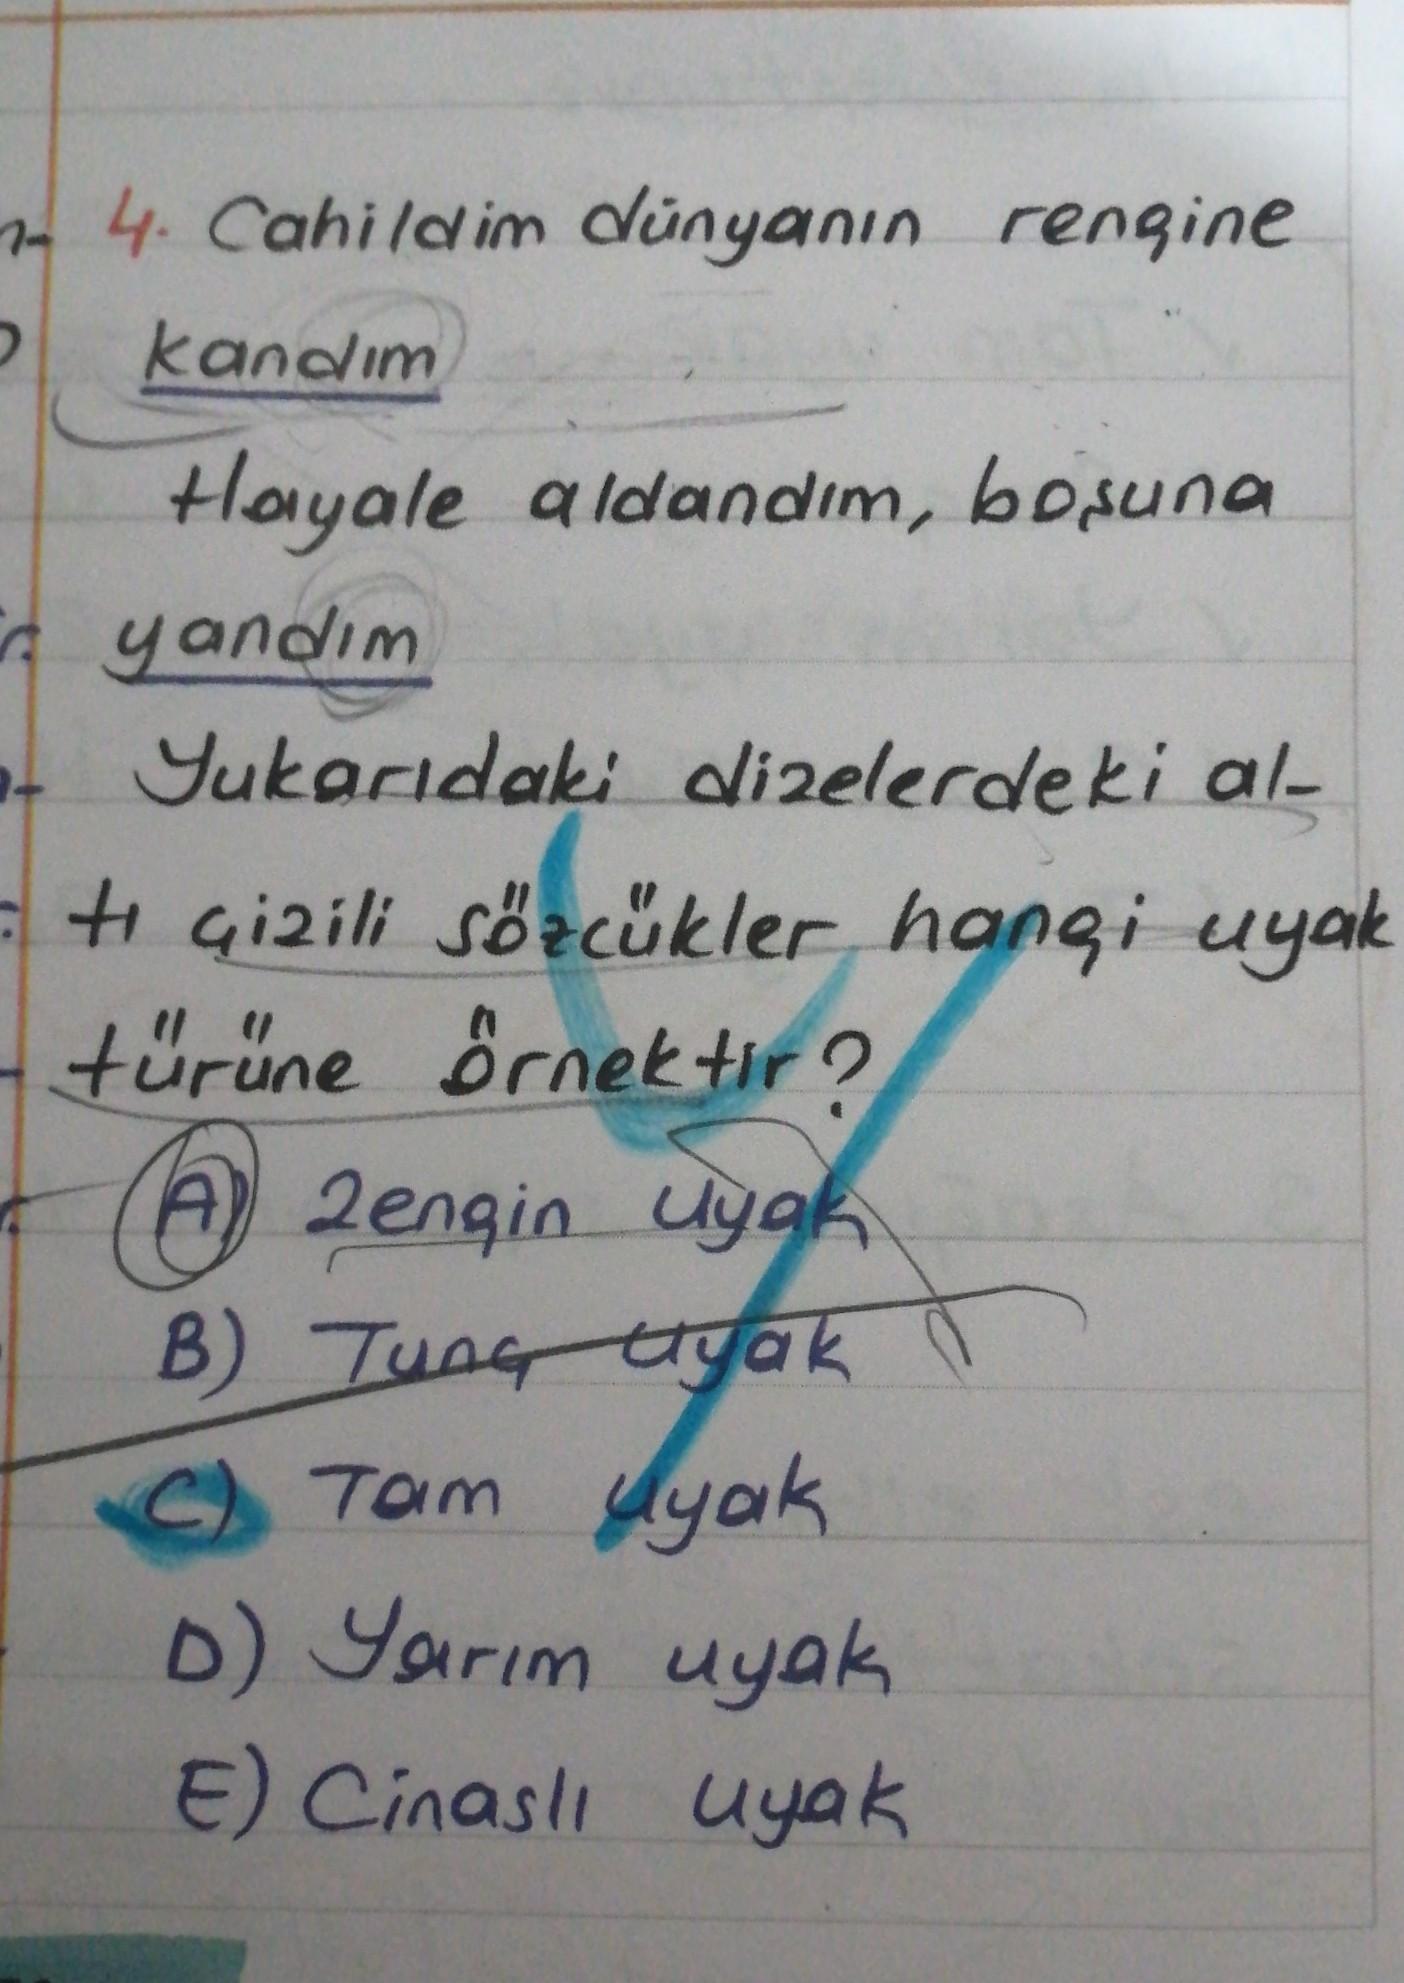 4. Cahildim dünyanın rengine
kandım
Hayale aldandım, boşuna
yandım
Yukarıdaki dizelerdeki al-
tı çizili sözcükler hangi uyak
türüne örnektir?
A) Zengin uyak
B) Tunç uyak
C) Tam uyak
D) Yarım uyak
E) Cinaslı uyak